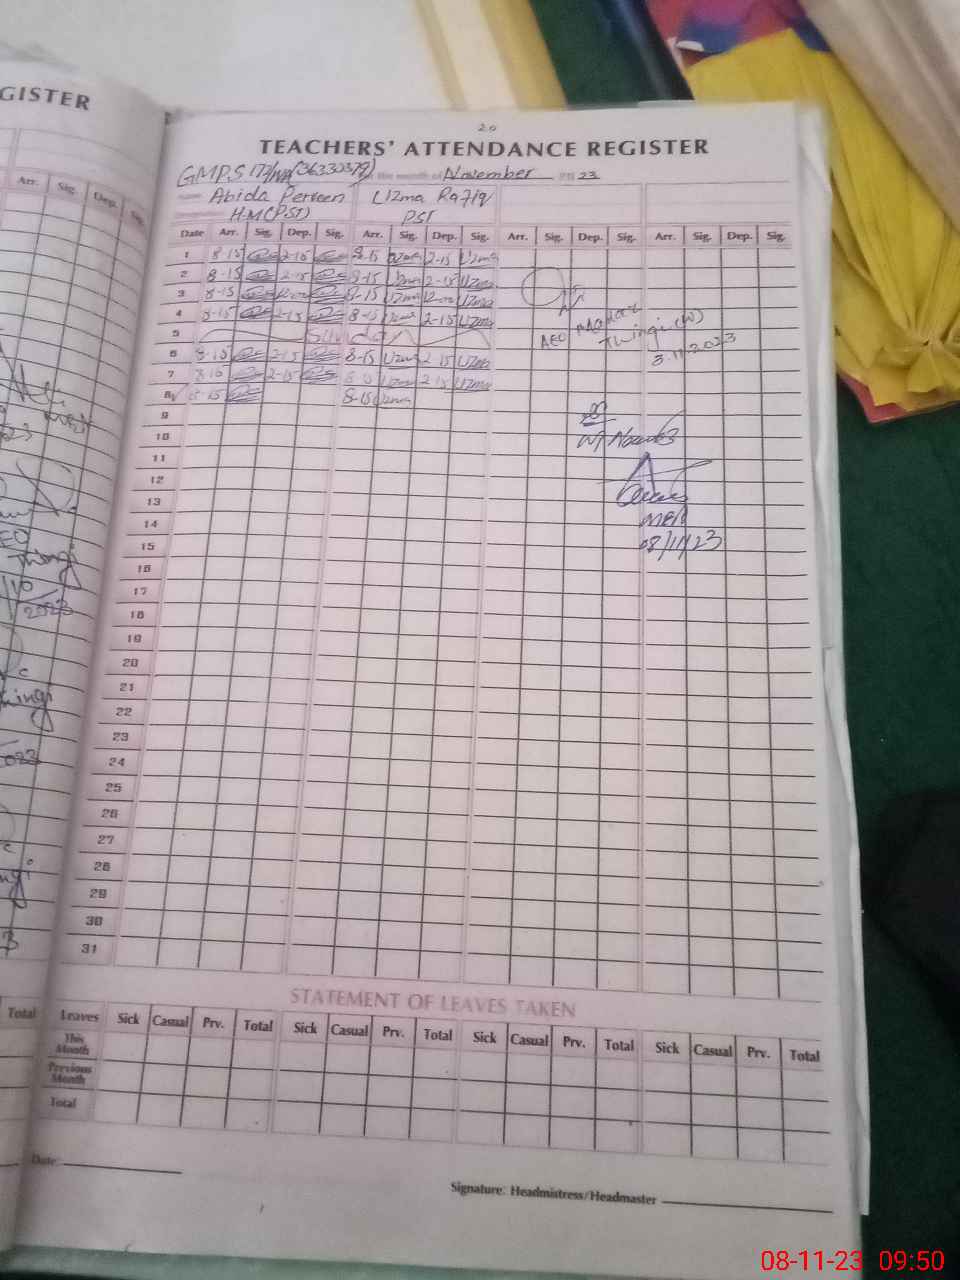 GISTER
Arr. Sig. Dep.
2023
2023
Total
20
TEACHERS' ATTENDANCE REGISTER
GMPS (36330379) the month of November 23
Abida Perveen Uzma Rafiq
H.M(PST) PST
Date Arr. Sig. Dep. Sig. Arr. Sig. Dep. Sig. Arr. Sig. Dep. Sig. Arr. Sig. Dep. Sig.
1 8-15 2-15 8-15 Uzma 2-15 Uzma
2 8-15 2-15 8-15 Uzma 2-15 Uzma
3 8-15 8-15 Uzma Uzma
4 8-15 2-15 8-15 Uzma 2-15 Uzma
5 Sunday
6 8-15 2-15 8-15 Uzma 2-15 Uzma
7 8-15 2-15 8-15 Uzma 2-15 Uzma
8 8-15 8-15 Uzma
AEO
3.11.2023
9
10
11
12
13
14
15
MEA
08/11/23
16
17
18
19
20
21
22
23
24
25
26
27
28
29
30
31
STATEMENT OF LEAVES TAKEN
Leaves Sick Casual Prv. Total Sick Casual Prv. Total Sick Casual Prv. Total Sick Casual Prv. Total
This Month
Previous Month
Total
Date:
Signature: Headmistress/Headmaster
08-11-23 09:50